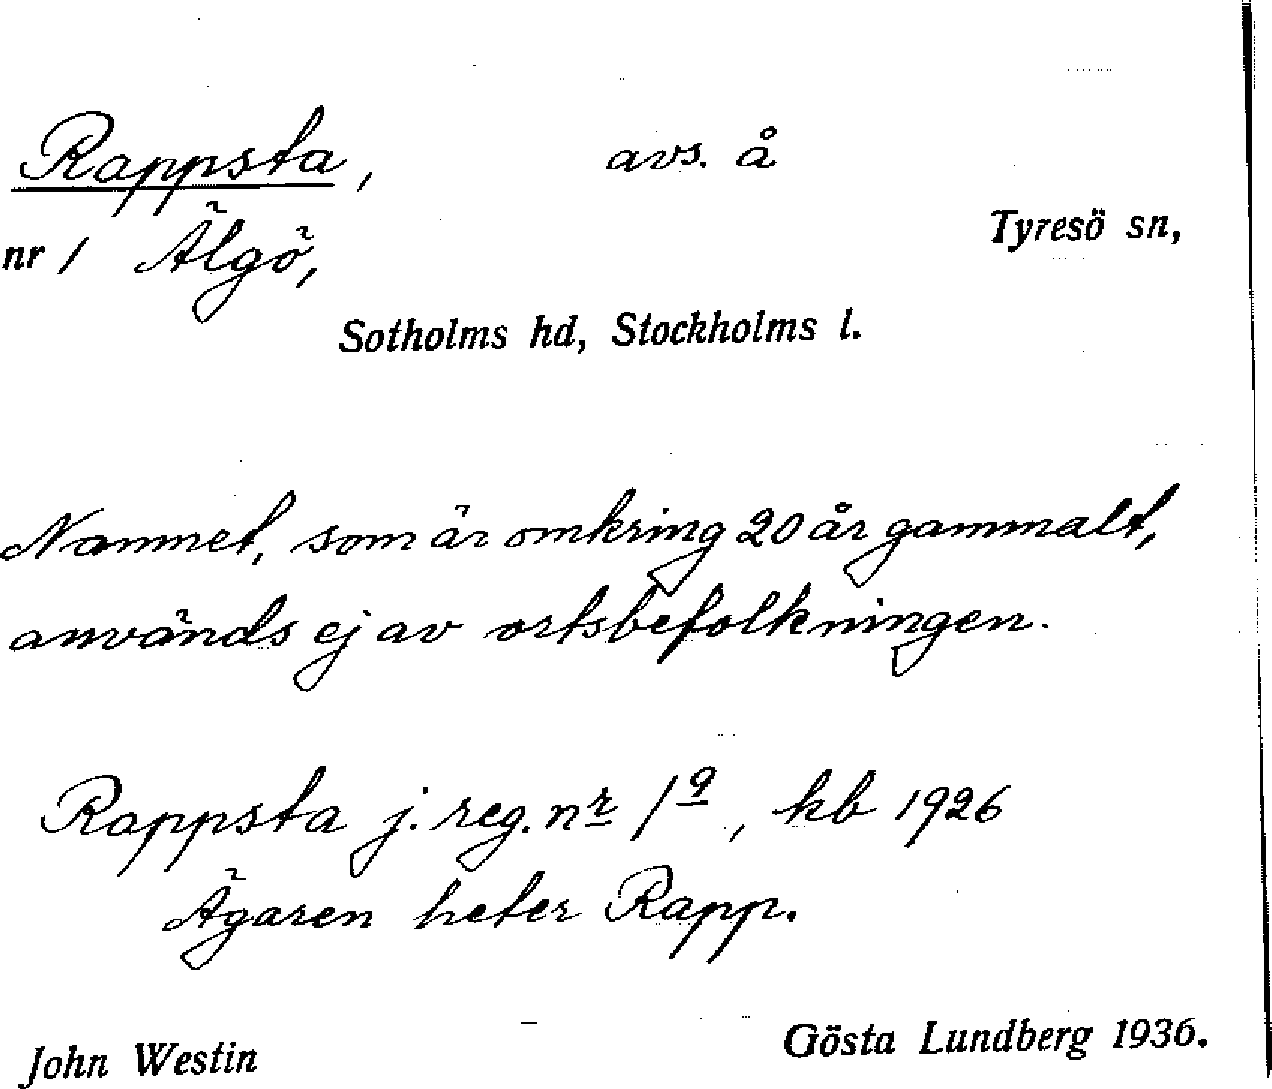 Rappsta, avs. å
Tyresö sn,
nr 1 Älgö,
Sotholms hd, Stockholms l.
Namnet, som är omkring 20 år gammalt,
används ej av ortsbefolkningen.
Rappsta j. reg. nr 1⁹, kb 1926
Ägaren heter Rapp.
John Westin
Gösta Lundberg 1936.